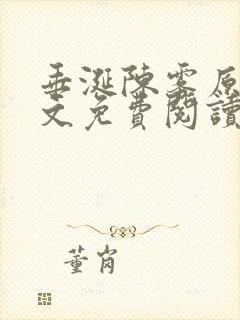 垂涎陳霧原
文免費閱讀
董肖